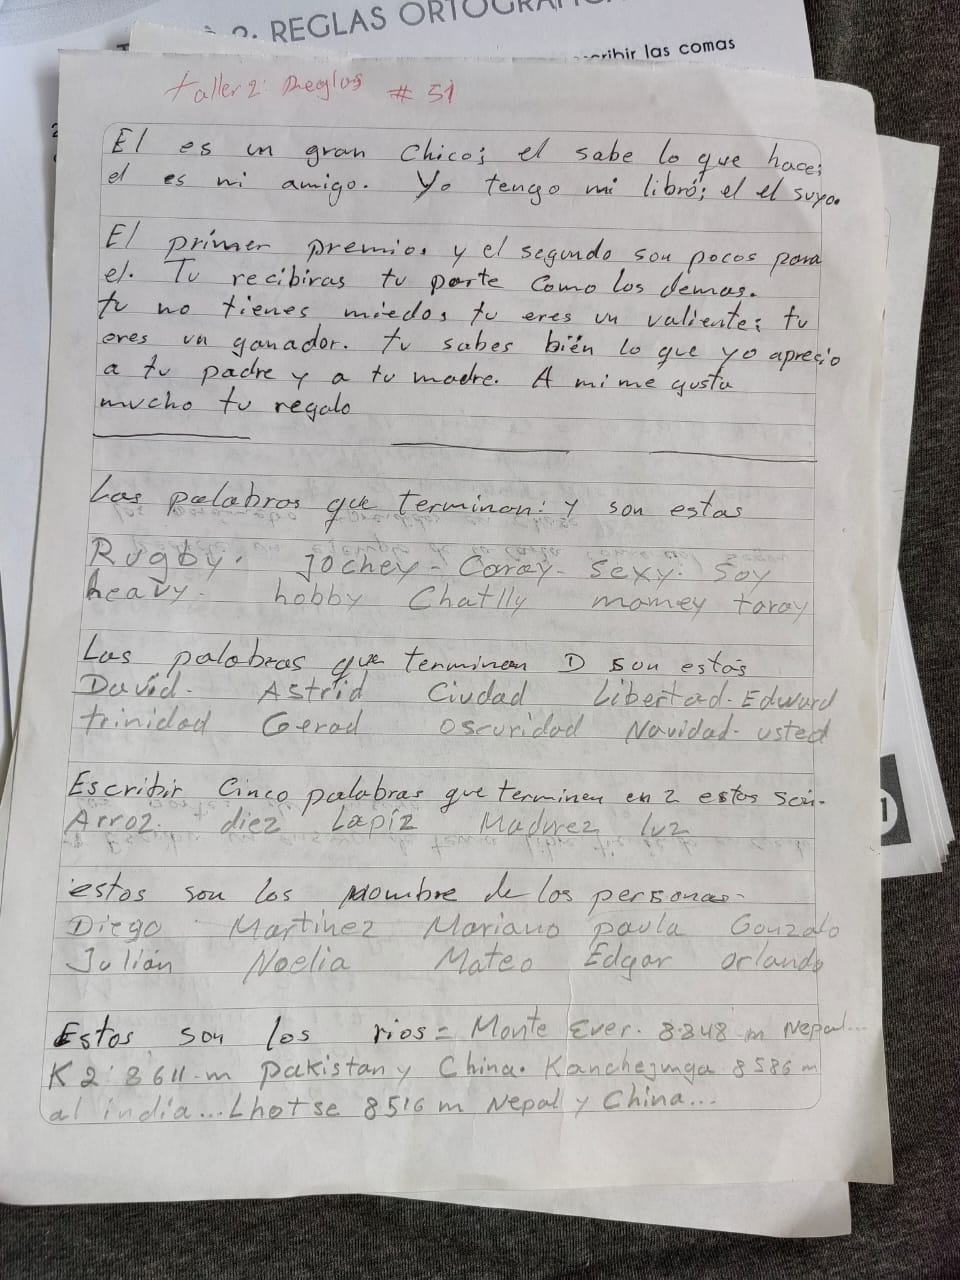 2. REGLAS ORTOGRÁFICA
escribir las comas
Taller 2: Reglas # 51
El es un gran Chico; el sabe lo que hace;
el es mi amigo. Yo tengo mi libró; el el suyo.
El primer premio, y el segundo son pocos para
el. Tu recibiras tu parte como los demas.
tu no tienes miedo, tu eres un valiente; tu
eres un ganador. tu sabes bién lo que yo aprecio
a tu padre y a tu madre. A mi me gusta
mucho tu regalo
Las palabras que terminan: y son estas
Rugby. Jochey - Caray - Sexy. Soy
heavy. hobby Chatlly mamey taray
Las palabras que terminen D son estas
David. Astrid Ciudad Libertad - Edward
trinidad Gerad oscuridad Navidad - usted
Escribir Cinco palabras que terminen en z estos son.
Arroz. diez Lapiz Madurez luz
estos son los Nombre de los personas -
Diego Martinez Mariano paula Gonzalo
Julián Noelia Mateo Edgar orlando
Estos son los rios = Monte Ever. 8.848 m Nepal...
K2: 8611-m Pakistan y China. Kanchejunga 8586 m
al india... Lhotse 8516 m Nepal y China...
1